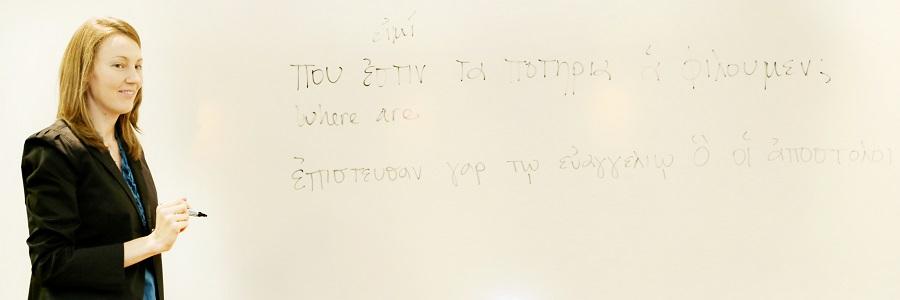 εἰμί
που ἐστιν τα ποτηρια ἁ φιλουμεν;
Where are
ἐπιστευσαν γαρ τῳ εὐαγγελιῳ ὃ οἱ ἀποστολοι